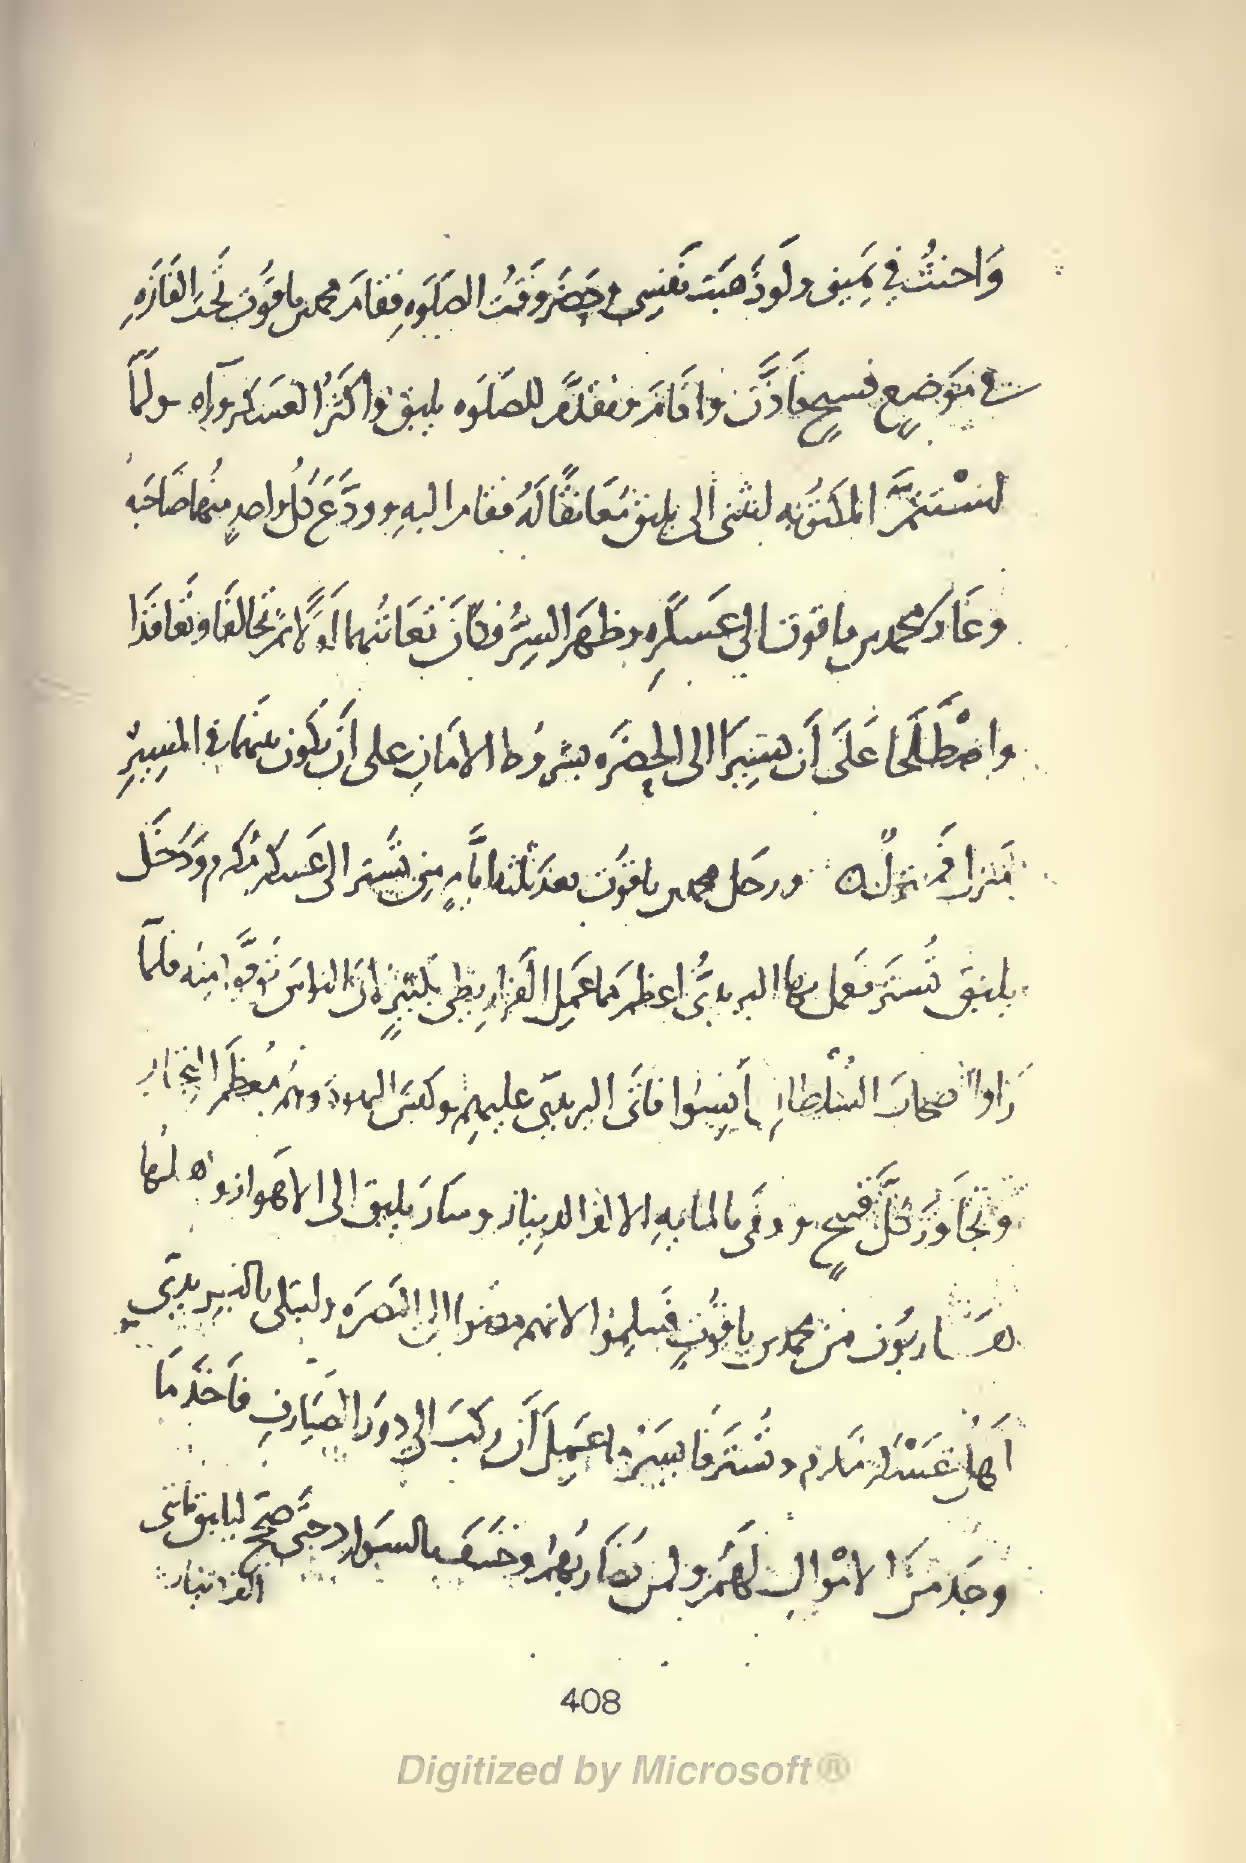 واحنث في يميني ولو ذهبت نفسي وحضر وقت الصلوه فقام محمد بن ياقوت تحت القازه
في موضع فسيح فاذن واقام وتقدم للصلوه يليق واكثر العسكر وراه ولما
المكتوبه انثنى الى يليق معانقا له فقام اليه وودع كل واحد منهما صاحبه
وعاد محمد بن ياقوت الى عسكره وظهر السر فكان تعاتبهما اولا ثم تحالفا وتعاقدا
واصطلحا على أن يسيرا الى الحضره بشروط الامان على أن يكون بينهما في المسير
منزل ورحل محمد بن ياقوت بعد ثلثه ايام من تستر الى عسكر مكرم ودخل
يليق تستر فعمل بها البريدي اعظم مما عمل القراريطي بلثير لان الناس توقوا منه فلما
راوا اصحاب السلطان أنسوا فاتى البريدي عليهم وكبس اليهود وهم معظم التجار
وتجاوز كل قبيح ووفى بالمايه الالف الدينار وسار يليق الى الاهواز واهلها
هاربون من محمد بن ياقوت فسلموا لانهم مضوا الى البصره وابتلى بالبريدي
اهل عسكر مكرم وتستر فايسر ما عمل أن ركب الى دور الصيارف فأخذ ما
وجد من الاموال لهم ولمن يضاربهم وخسف بالسواد حتى صح ليليق مايتي
الف دينار
408
Digitized by Microsoft®